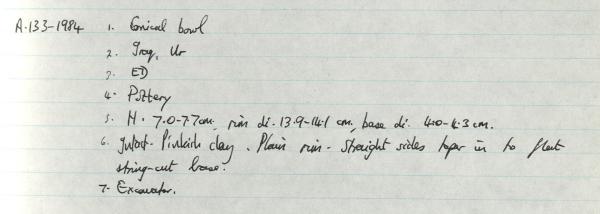 A.133-1984 1. Conical bowl
2. Iraq, Ur
3. ED
4. Pottery
5. H. 7.0-7.7cm, rim di. 13.9-14.1 cm, base di. 4.0-4.3 cm.
6. Intact. Pinkish clay. Plain rim. Straight sides taper in to flat
string-cut base.
7. Excavator.